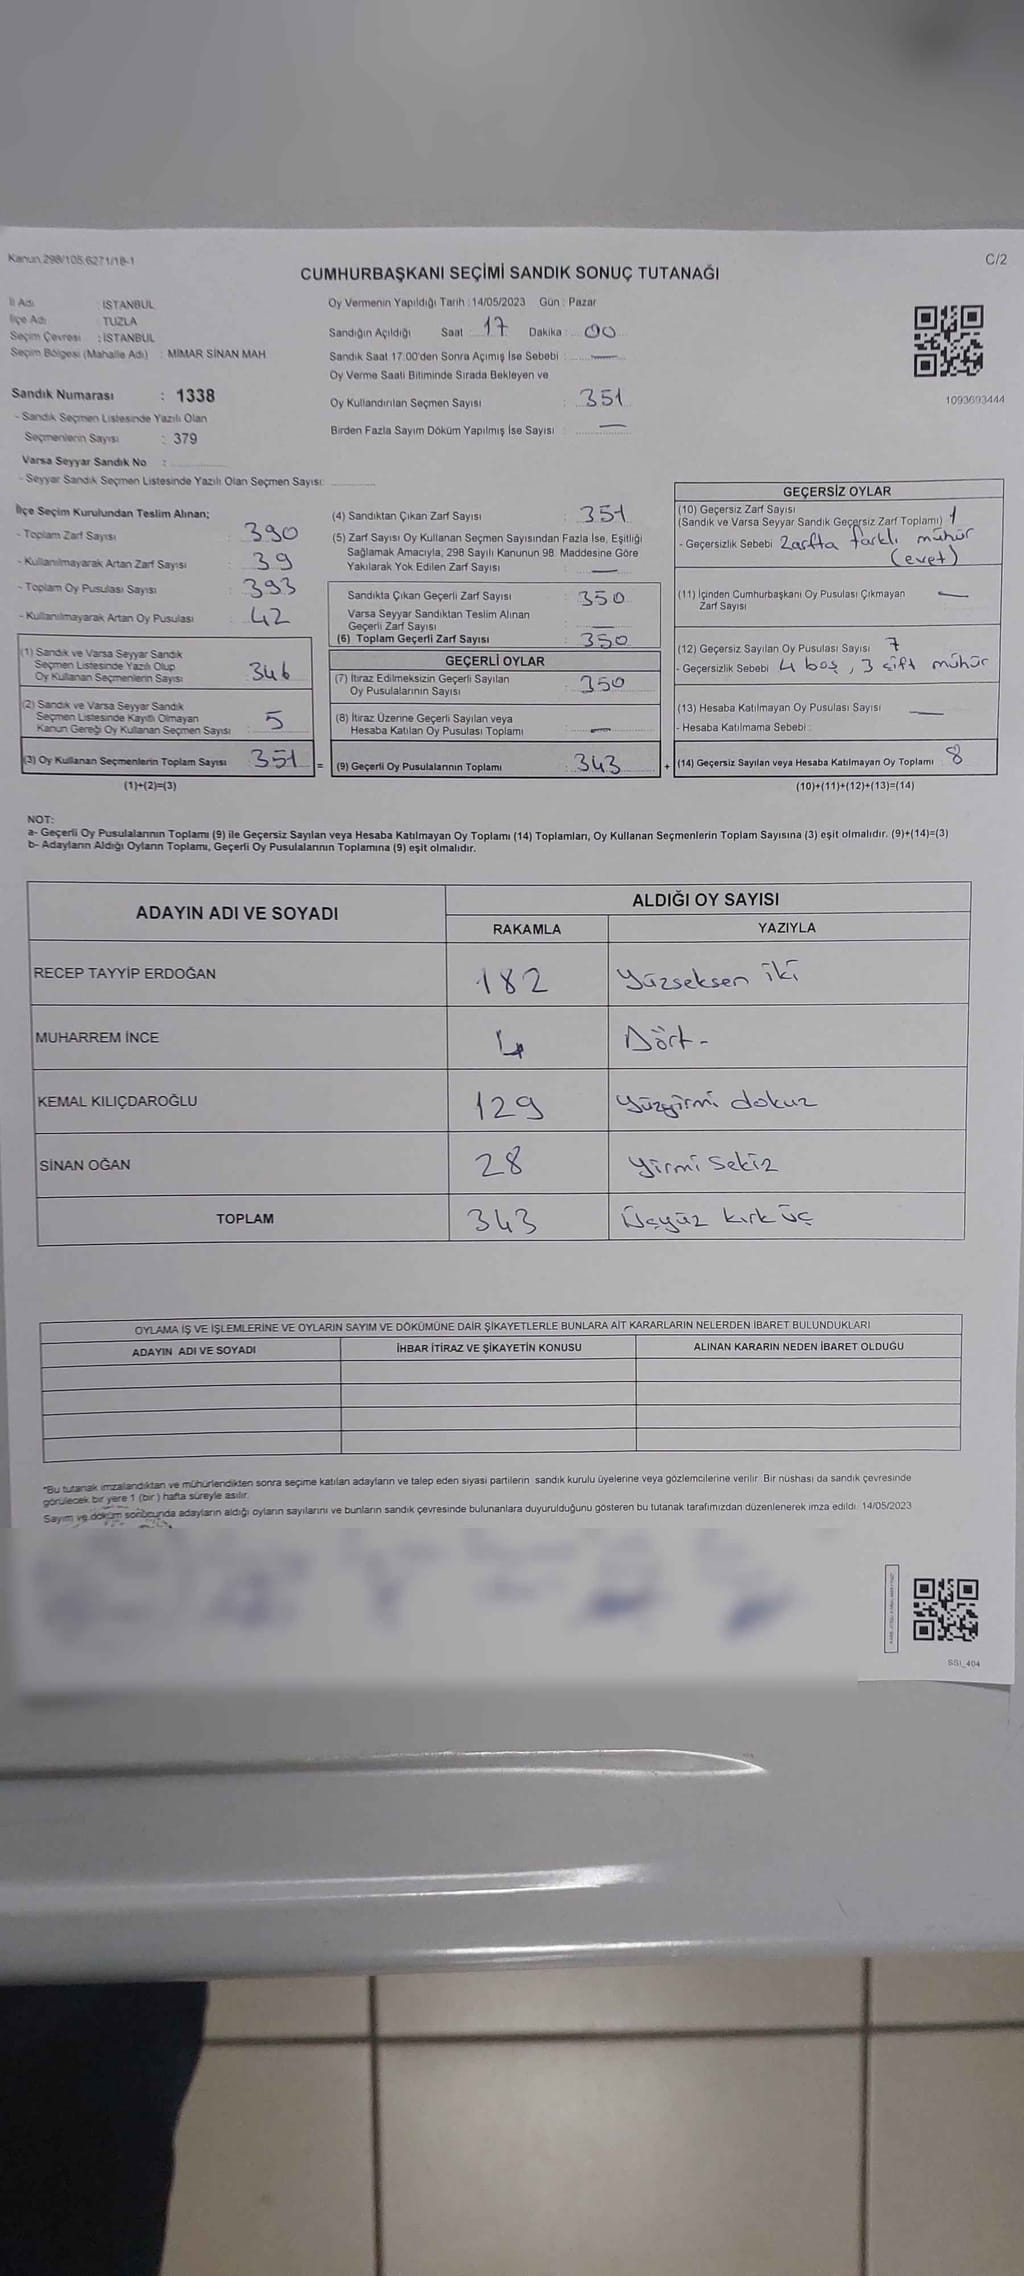 Kanun 298/105,6271/18-1
C/2
CUMHURBAŞKANI SEÇİMİ SANDIK SONUÇ TUTANAĞI
İl Adı : İSTANBUL
İlçe Adı : TUZLA
Seçim Çevresi : İSTANBUL
Seçim Bölgesi (Mahalle Adı) : MİMAR SİNAN MAH
Sandık Numarası : 1338
- Sandık Seçmen Listesinde Yazılı Olan
Seçmenlerin Sayısı : 379
Varsa Seyyar Sandık No :
- Seyyar Sandık Seçmen Listesinde Yazılı Olan Seçmen Sayısı:
Oy Vermenin Yapıldığı Tarih : 14/05/2023 Gün : Pazar
Sandığın Açıldığı Saat 17 Dakika 00
Sandık Saat 17:00'den Sonra Açımış İse Sebebi : —
Oy Verme Saati Bitiminde Sırada Bekleyen ve
Oy Kullandırılan Seçmen Sayısı : 351
Birden Fazla Sayım Döküm Yapılmış İse Sayısı : —
1093693444
İlçe Seçim Kurulundan Teslim Alınan;
- Toplam Zarf Sayısı : 390
- Kullanılmayarak Artan Zarf Sayısı : 39
- Toplam Oy Pusulası Sayısı : 393
- Kullanılmayarak Artan Oy Pusulası : 42
(1) Sandık ve Varsa Seyyar Sandık
Seçmen Listesinde Yazılı Olup
Oy Kullanan Seçmenlerin Sayısı : 346
(2) Sandık ve Varsa Seyyar Sandık
Seçmen Listesinde Kayıtlı Olmayan
Kanun Gereği Oy Kullanan Seçmen Sayısı : 5
(3) Oy Kullanan Seçmenlerin Toplam Sayısı : 351 =
(1)+(2)=(3)
(4) Sandıktan Çıkan Zarf Sayısı : 351
(5) Zarf Sayısı Oy Kullanan Seçmen Sayısından Fazla İse, Eşitliği
Sağlamak Amacıyla, 298 Sayılı Kanunun 98. Maddesine Göre
Yakılarak Yok Edilen Zarf Sayısı : —
Sandıkta Çıkan Geçerli Zarf Sayısı : 350
Varsa Seyyar Sandıktan Teslim Alınan
Geçerli Zarf Sayısı : —
(6) Toplam Geçerli Zarf Sayısı : 350
GEÇERLİ OYLAR
(7) İtiraz Edilmeksizin Geçerli Sayılan
Oy Pusulalarının Sayısı : 350
(8) İtiraz Üzerine Geçerli Sayılan veya
Hesaba Katılan Oy Pusulası Toplamı : —
(9) Geçerli Oy Pusulalarının Toplamı : 343 +
GEÇERSİZ OYLAR
(10) Geçersiz Zarf Sayısı
(Sandık ve Varsa Seyyar Sandık Geçersiz Zarf Toplamı) 1
- Geçersizlik Sebebi Zarfta farklı mühür
(evet)
(11) İçinden Cumhurbaşkanı Oy Pusulası Çıkmayan —
Zarf Sayısı
(12) Geçersiz Sayılan Oy Pusulası Sayısı 7
- Geçersizlik Sebebi 4 boş, 3 çift mühür
(13) Hesaba Katılmayan Oy Pusulası Sayısı —
- Hesaba Katılmama Sebebi :
(14) Geçersiz Sayılan veya Hesaba Katılmayan Oy Toplamı 8
(10)+(11)+(12)+(13)=(14)
NOT:
a- Geçerli Oy Pusulalarının Toplamı (9) ile Geçersiz Sayılan veya Hesaba Katılmayan Oy Toplamı (14) Toplamları, Oy Kullanan Seçmenlerin Toplam Sayısına (3) eşit olmalıdır. (9)+(14)=(3)
b- Adayların Aldığı Oyların Toplamı, Geçerli Oy Pusulalarının Toplamına (9) eşit olmalıdır.
ADAYIN ADI VE SOYADI
ALDIĞI OY SAYISI
RAKAMLA YAZIYLA
RECEP TAYYİP ERDOĞAN 182 Yüzseksen iki
MUHARREM İNCE 4 Dört -
KEMAL KILIÇDAROĞLU 129 Yüzyirmi dokuz
SİNAN OĞAN 28 Yirmi sekiz
TOPLAM 343 Üçyüz kırk üç
OYLAMA İŞ VE İŞLEMLERİNE VE OYLARIN SAYIM VE DÖKÜMÜNE DAİR ŞİKAYETLERLE BUNLARA AİT KARARLARIN NELERDEN İBARET BULUNDUKLARI
ADAYIN ADI VE SOYADI İHBAR İTİRAZ VE ŞİKAYETİN KONUSU ALINAN KARARIN NEDEN İBARET OLDUĞU
*Bu tutanak imzalandıktan ve mühürlendikten sonra seçime katılan adayların ve talep eden siyasi partilerin sandık kurulu üyelerine veya gözlemcilerine verilir. Bir nüshası da sandık çevresinde
görülecek bir yere 1 (bir) hafta süreyle asılır.
Sayım ve döküm sonucunda adayların aldığı oyların sayılarını ve bunların sandık çevresinde bulunanlara duyurulduğunu gösteren bu tutanak tarafımızdan düzenlenerek imza edildi. 14/05/2023
SSI_404